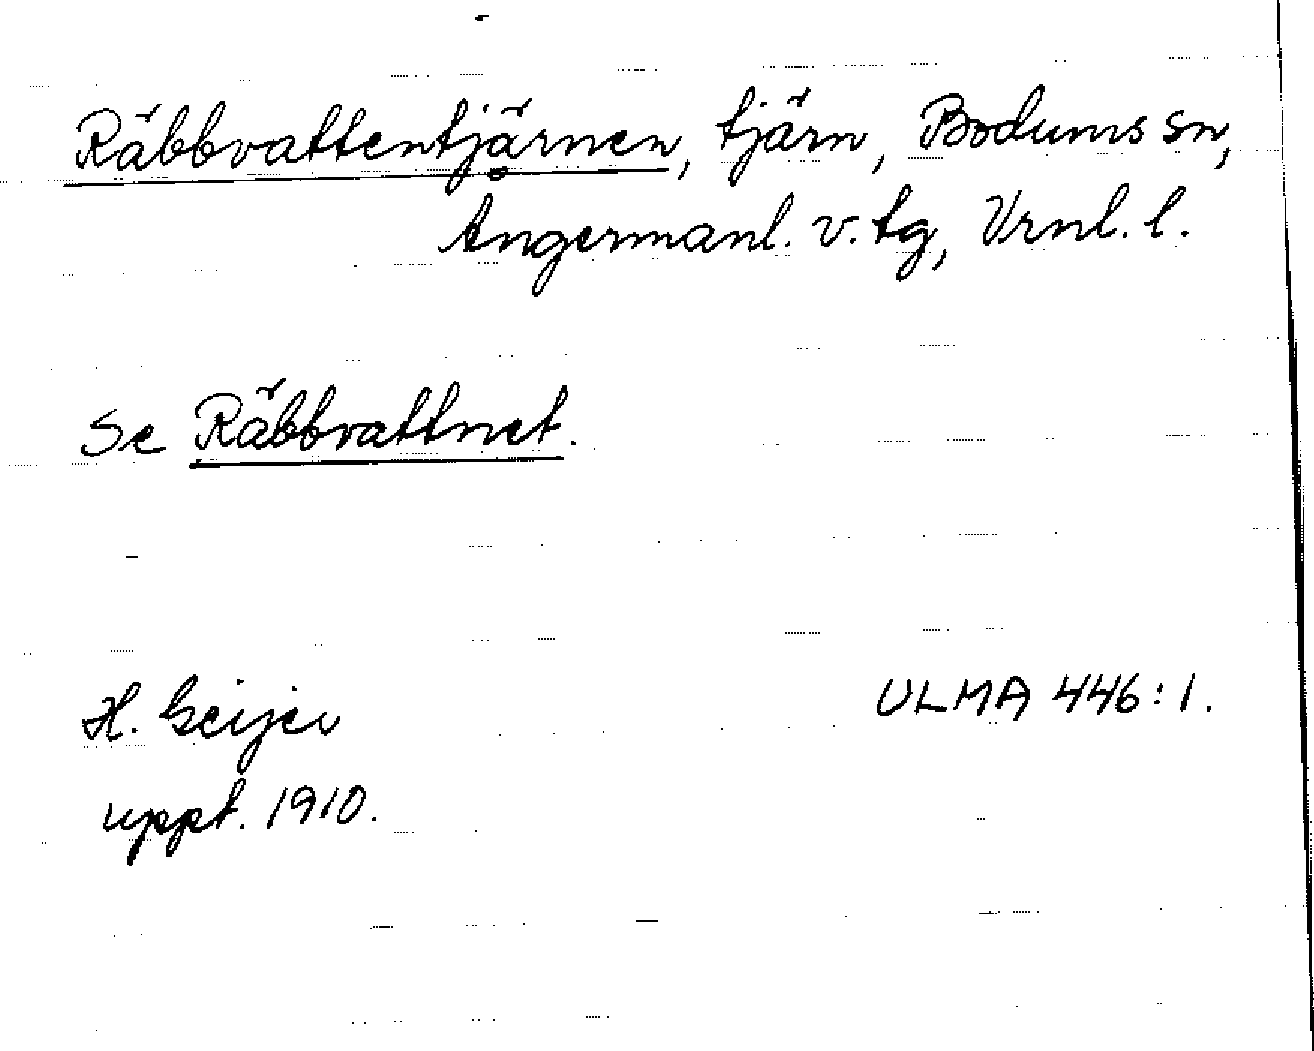 Räbbvattentjärnen, tjärn, Bodums sn,
Ångermanl. v. tg, Vrnl. l.
Se Räbbvattnet.
H. Geijer
ULMA 446:1.
uppt. 1910.